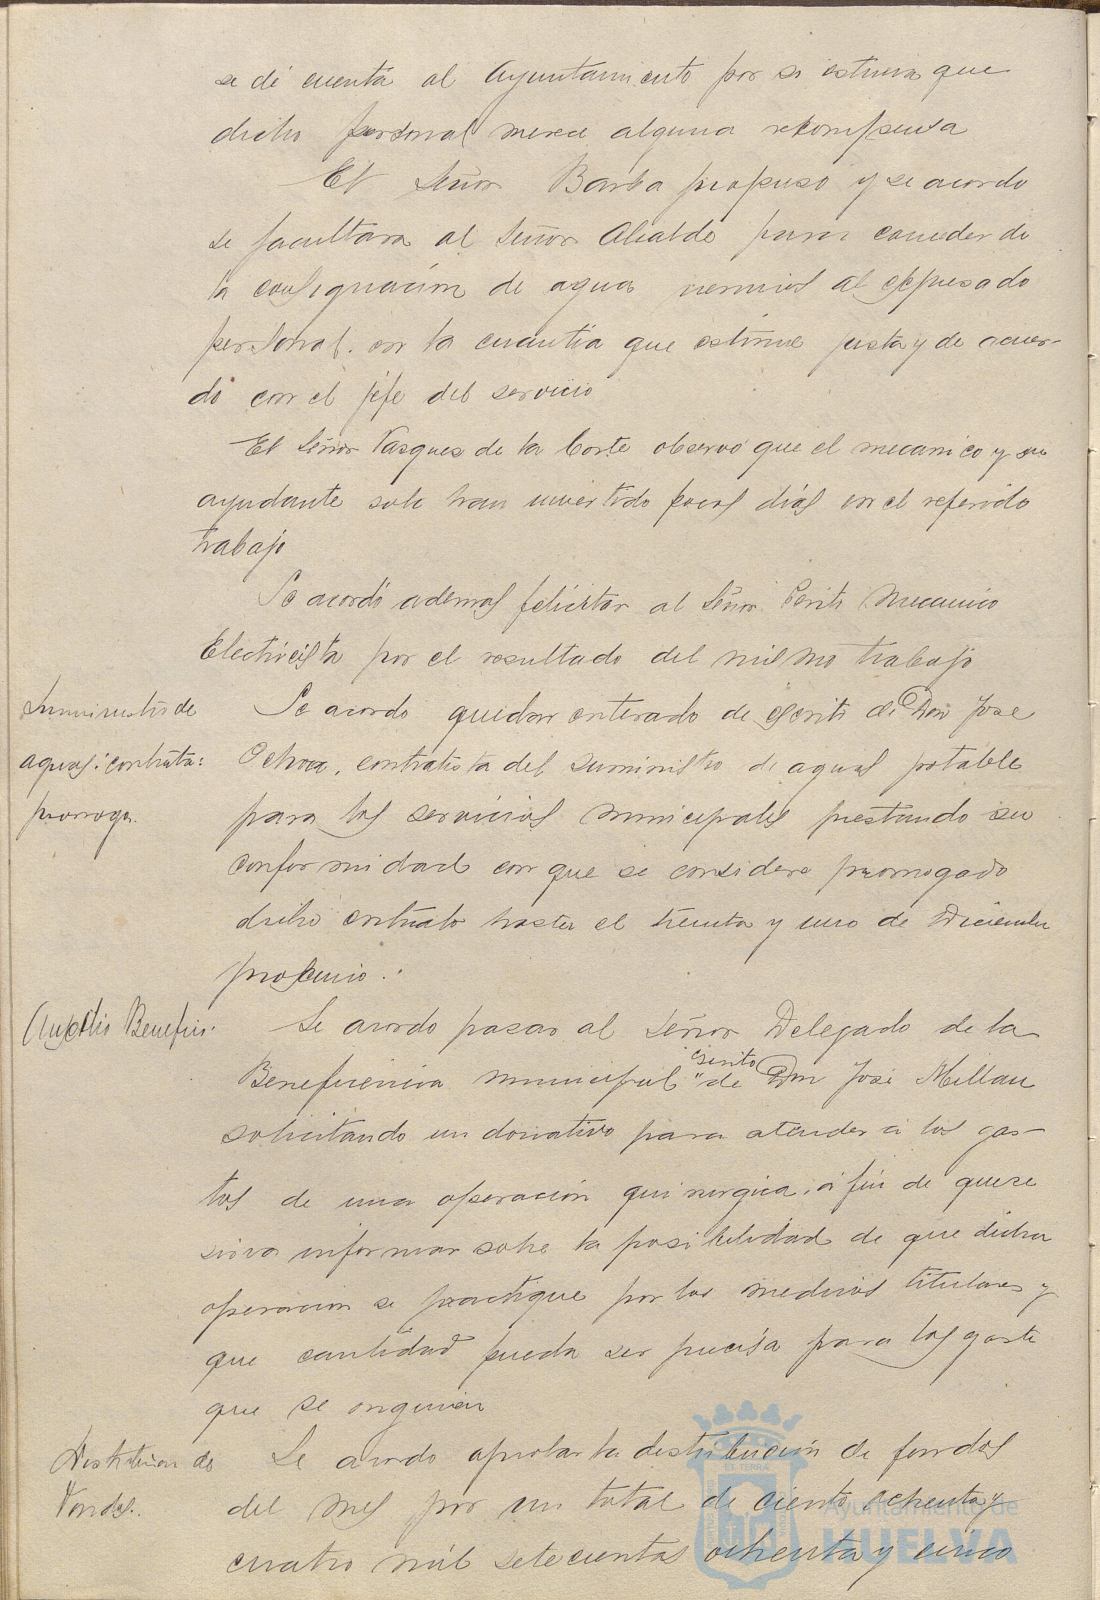 se dé cuenta al Ayuntamiento por si estima que
dicho personal merece alguna recompensa
El Señor Barba propuso y se acordo
se facultara al Señor Alcalde para conceder de
la consignación de agua premios al expresado
personal. en la cuantia que estime justa y de acuer-
do con el jefe del servicio
El Señor Vasquez de la Corte observó que el mecanico y su
ayudante solo han invertido pocos dias en el referido
trabajo
Se acordó ademas felicitar al Señor Perito Mecanico
Electricista por el resultado del mismo trabajo
Suministro de
aguas: contrata:
prorroga.
Se acordo quedar enterado de escrito de Don Jose
Ochoa, contratista del suministro de aguas potable
para los servicios municipales prestando su
conformidad con que se considere prorrogado
dicho contrato hasta el treinta y uno de Diciembre
proximo.
Auxilio Benefico.
Se acordo pasar al Señor Delegado de la
Beneficencia municipal "escrito" de Don José Millan
solicitando un donativo para atender a los gas-
tos de una operación quirurgica, a fin de que se
sirva informar sobre la posibilidad de que dicha
operacion se practique por los medicos titulares y
que cantidad pueda ser precisa para los gasto
que se originen
Distribucion de
Fondos.
Se acordo aprobar la distribución de fondos
del mes por un total de ciento ochenta y
cuatro mil setecientas ochenta y cinco
Ayuntamiento de
HUELVA